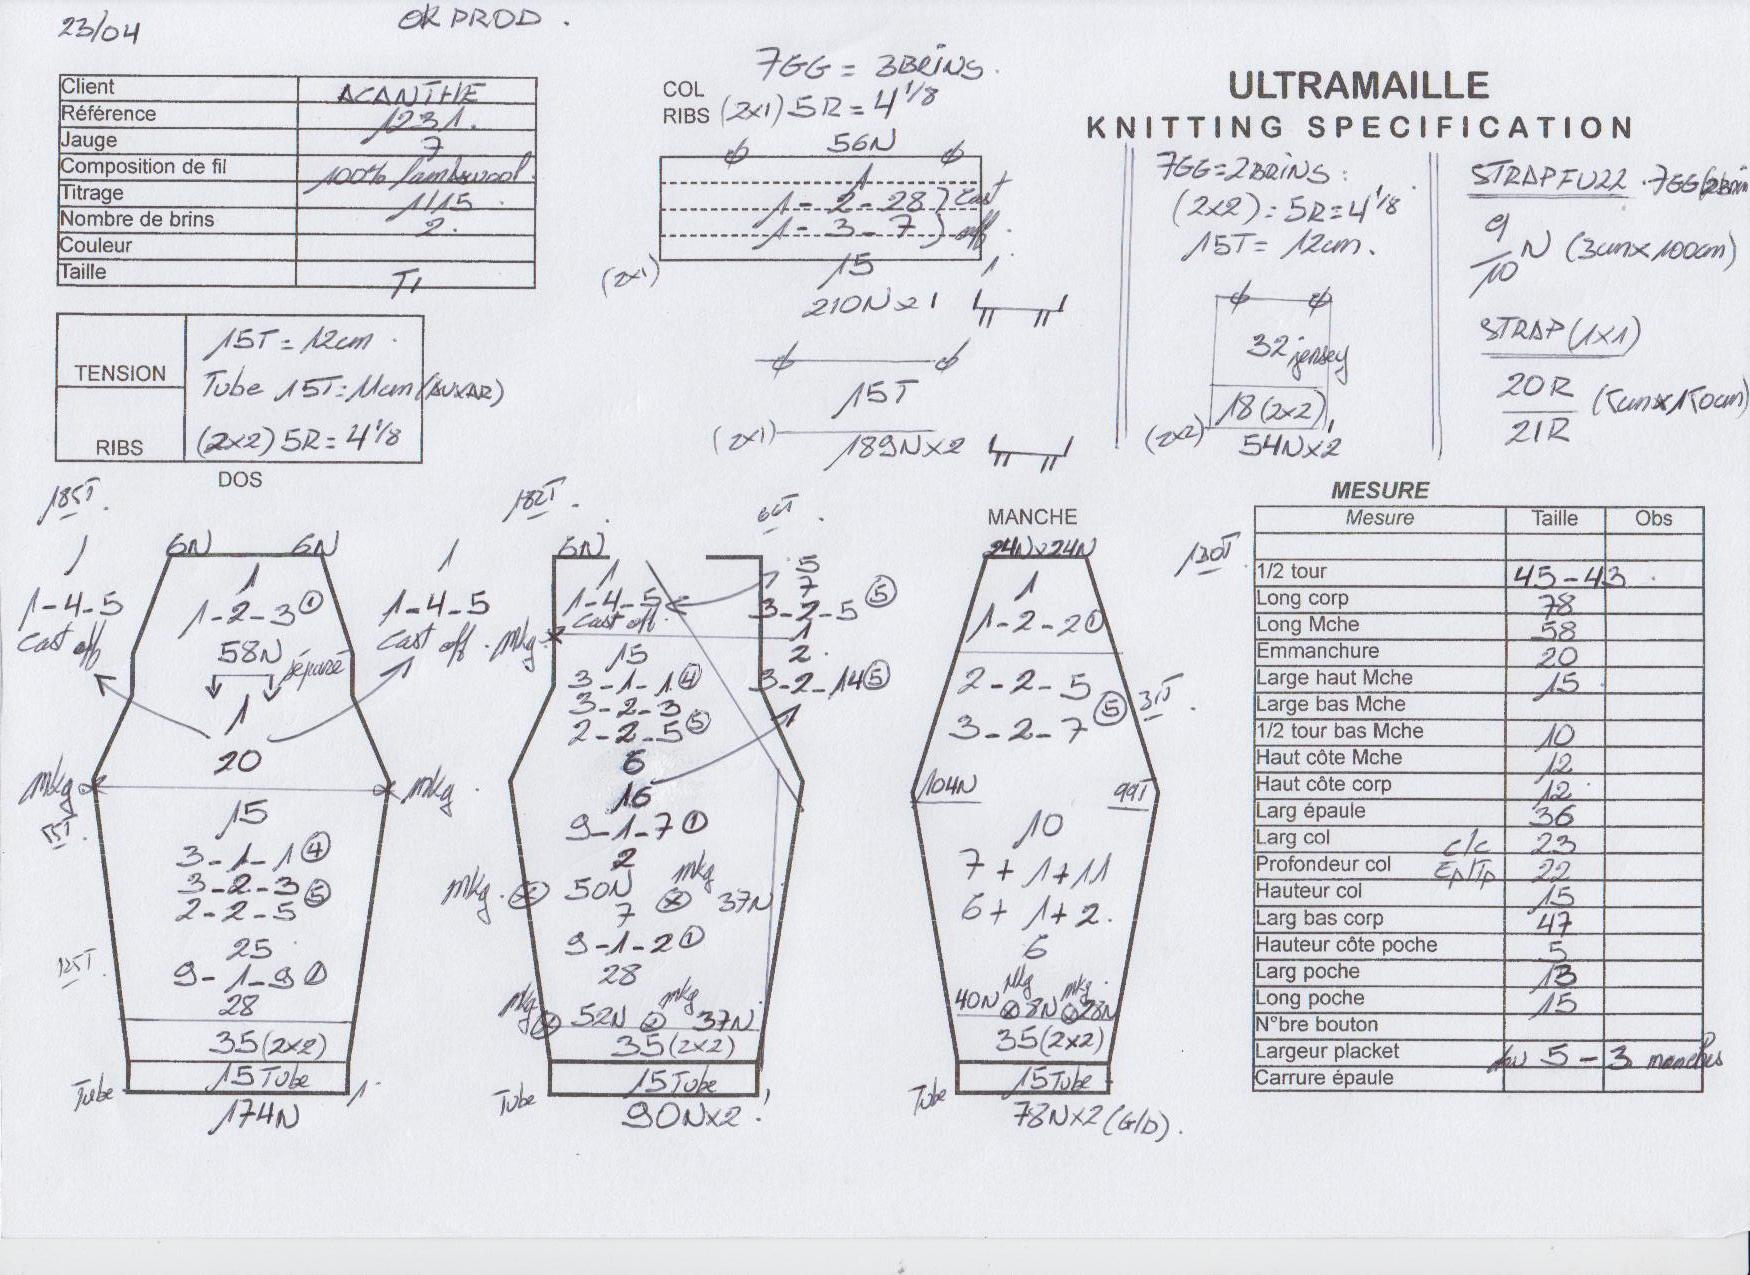 23/04
OK PROD.
Client ACANTHE
Référence 1231.
Jauge 7
Composition de fil 100% lambswool.
Titrage 1/15
Nombre de brins 2.
Couleur
Taille T1
TENSION
15T = 12cm.
Tube 15T = 11cm (AUXAR)
RIBS
(2x2) 5R = 4 1/8
7GG = 3BRINS.
COL
RIBS (2x1) 5R = 4 1/8
56N
1
1-2-28 ) Cast
1-3-7 ) off.
(2x1)
15
1
210N x 1
15T
(2x1)
189N x 2
ULTRAMAILLE
KNITTING SPECIFICATION
7GG = 2BRINS:
(2x2) = 5R = 4 1/8
15T = 12cm.
32 jersey
18 (2x2)
(2x2)
54N x 2
STRAP FU22. 7GG/2Brin
9/10 N (3cm x 100cm)
STRAP (1x1)
20R
21R
(5cm x 150cm)
DOS
185T.
6N 6N
1
1-4-5
cast off
1
1-2-3 (1)
58N
séparé
1
1-4-5
cast off.
1
20
mkg mkg.
55T.
15
3-1-1 (4)
3-2-3
2-2-5 (5)
125T.
25
9-1-9 (1)
28
35 (2x2)
Tube 15 Tube
174N
1
182T.
66T.
6N
1
1-4-5
cast off.
mkg
5
7
3-2-5 (5)
1
2
3-2-14 (5)
15
3-1-1 (4)
3-2-3
2-2-5 (5)
6
16
9-1-7 (1)
2
mkg. 50N mkg 37N
7
9-1-2 (1)
28
mkg 52N mkg 37N
35 (2x2)
Tube 15 Tube
90N x 2.
MANCHE
24N x 24N
130T
1
1-2-20
2-2-5
3-2-7 (5)
31T.
104N 99T
10
7+1+11
6+1+2.
6
40N mkg 8N mkg. 28N
35 (2x2)
Tube 15 Tube
78N x 2 (G/D).
MESURE
Mesure Taille Obs
1/2 tour 45-43.
Long corp 78
Long Mche 58
Emmanchure 20
Large haut Mche 15
Large bas Mche
1/2 tour bas Mche 10
Haut côte Mche 12
Haut côte corp 12
Larg épaule 36
Larg col c/c 23
Profondeur col Ep/Tp 22
Hauteur col 15
Larg bas corp 47
Hauteur côte poche 5
Larg poche 13
Long poche 15
N°bre bouton
Largeur placket 5-3 manches
Carrure épaule